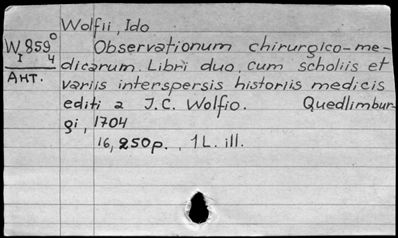 Wolfii, Ido
W 859⁰ Observationum chirurgico-me-
I 4
Ант. dicarum. Libri duo, cum scholiis et
variis interspersis historiis medicis
editi a J.C. Wolfio. Quedlimbur-
gi, 1704
16, 250p., 1 L. ill.